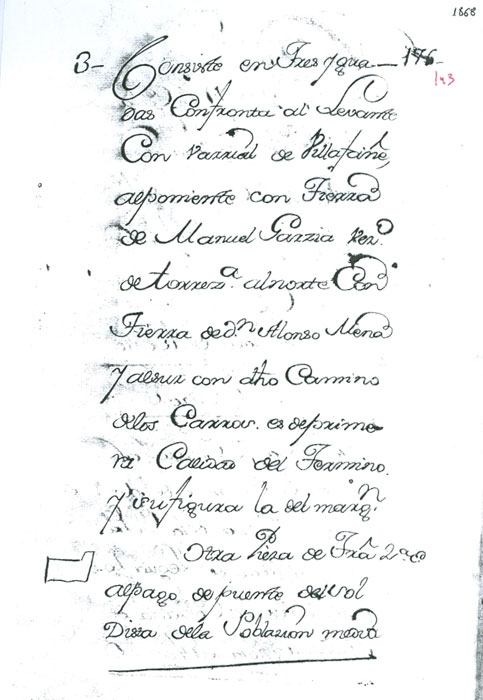 1868
3- Consiste en Tres ygua_ 176-
143
das Confronta al Levante
Con Varrial de Villafañe,
alponiente con Tierra
de Manuel Garzia vez.º
de torrez.ª alnorte Con
Tierra de d.n Alonso Mend
y alsur con dho Camino
delos Carros. es deprime
ra Calidad del Termino.
y su figura la del marg.n
Otra Pieza de Tr.ª
alpago de puente de
Dista dela Poblazion media